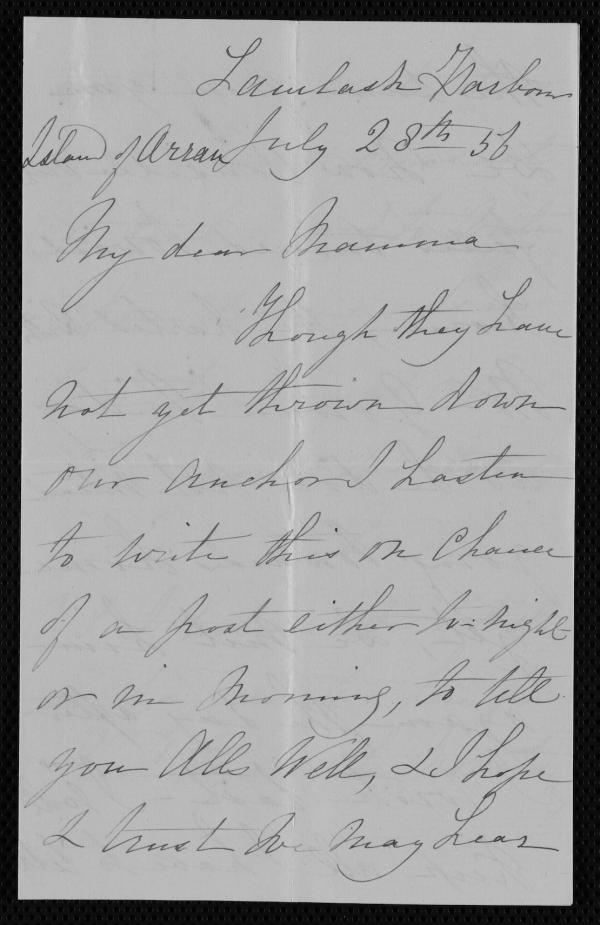 Lamlash Harbour
Island of Arran July 28th 56
My dear Mamma
Though they have
not yet thrown down
our anchor I hasten
to write this on chance
of a post either to-night
or in morning, to tell
you Alls Well, & I hope
& trust We may hear